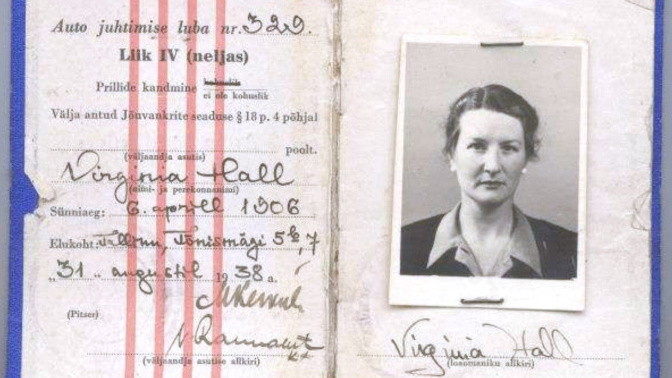 Auto juhtimise luba nr. 329.
Liik IV (neljas)
Prillide kandmine kohuslik
ei ole kohuslik
Välja antud Jõuvankrite seaduse § 18 p. 4 põhjal
poolt.
(väljaandja asutis)
Virginia Hall
(nimi- ja perekonnanimi)
Sünniaeg: 6. aprill 1906
Elukoht: Tallinn, Tõnismägi 5
"31" augustil 1938 a.
(Pitser)
(väljaandja asutise allkiri)
Virginia Hall
(loaomaniku allkiri)